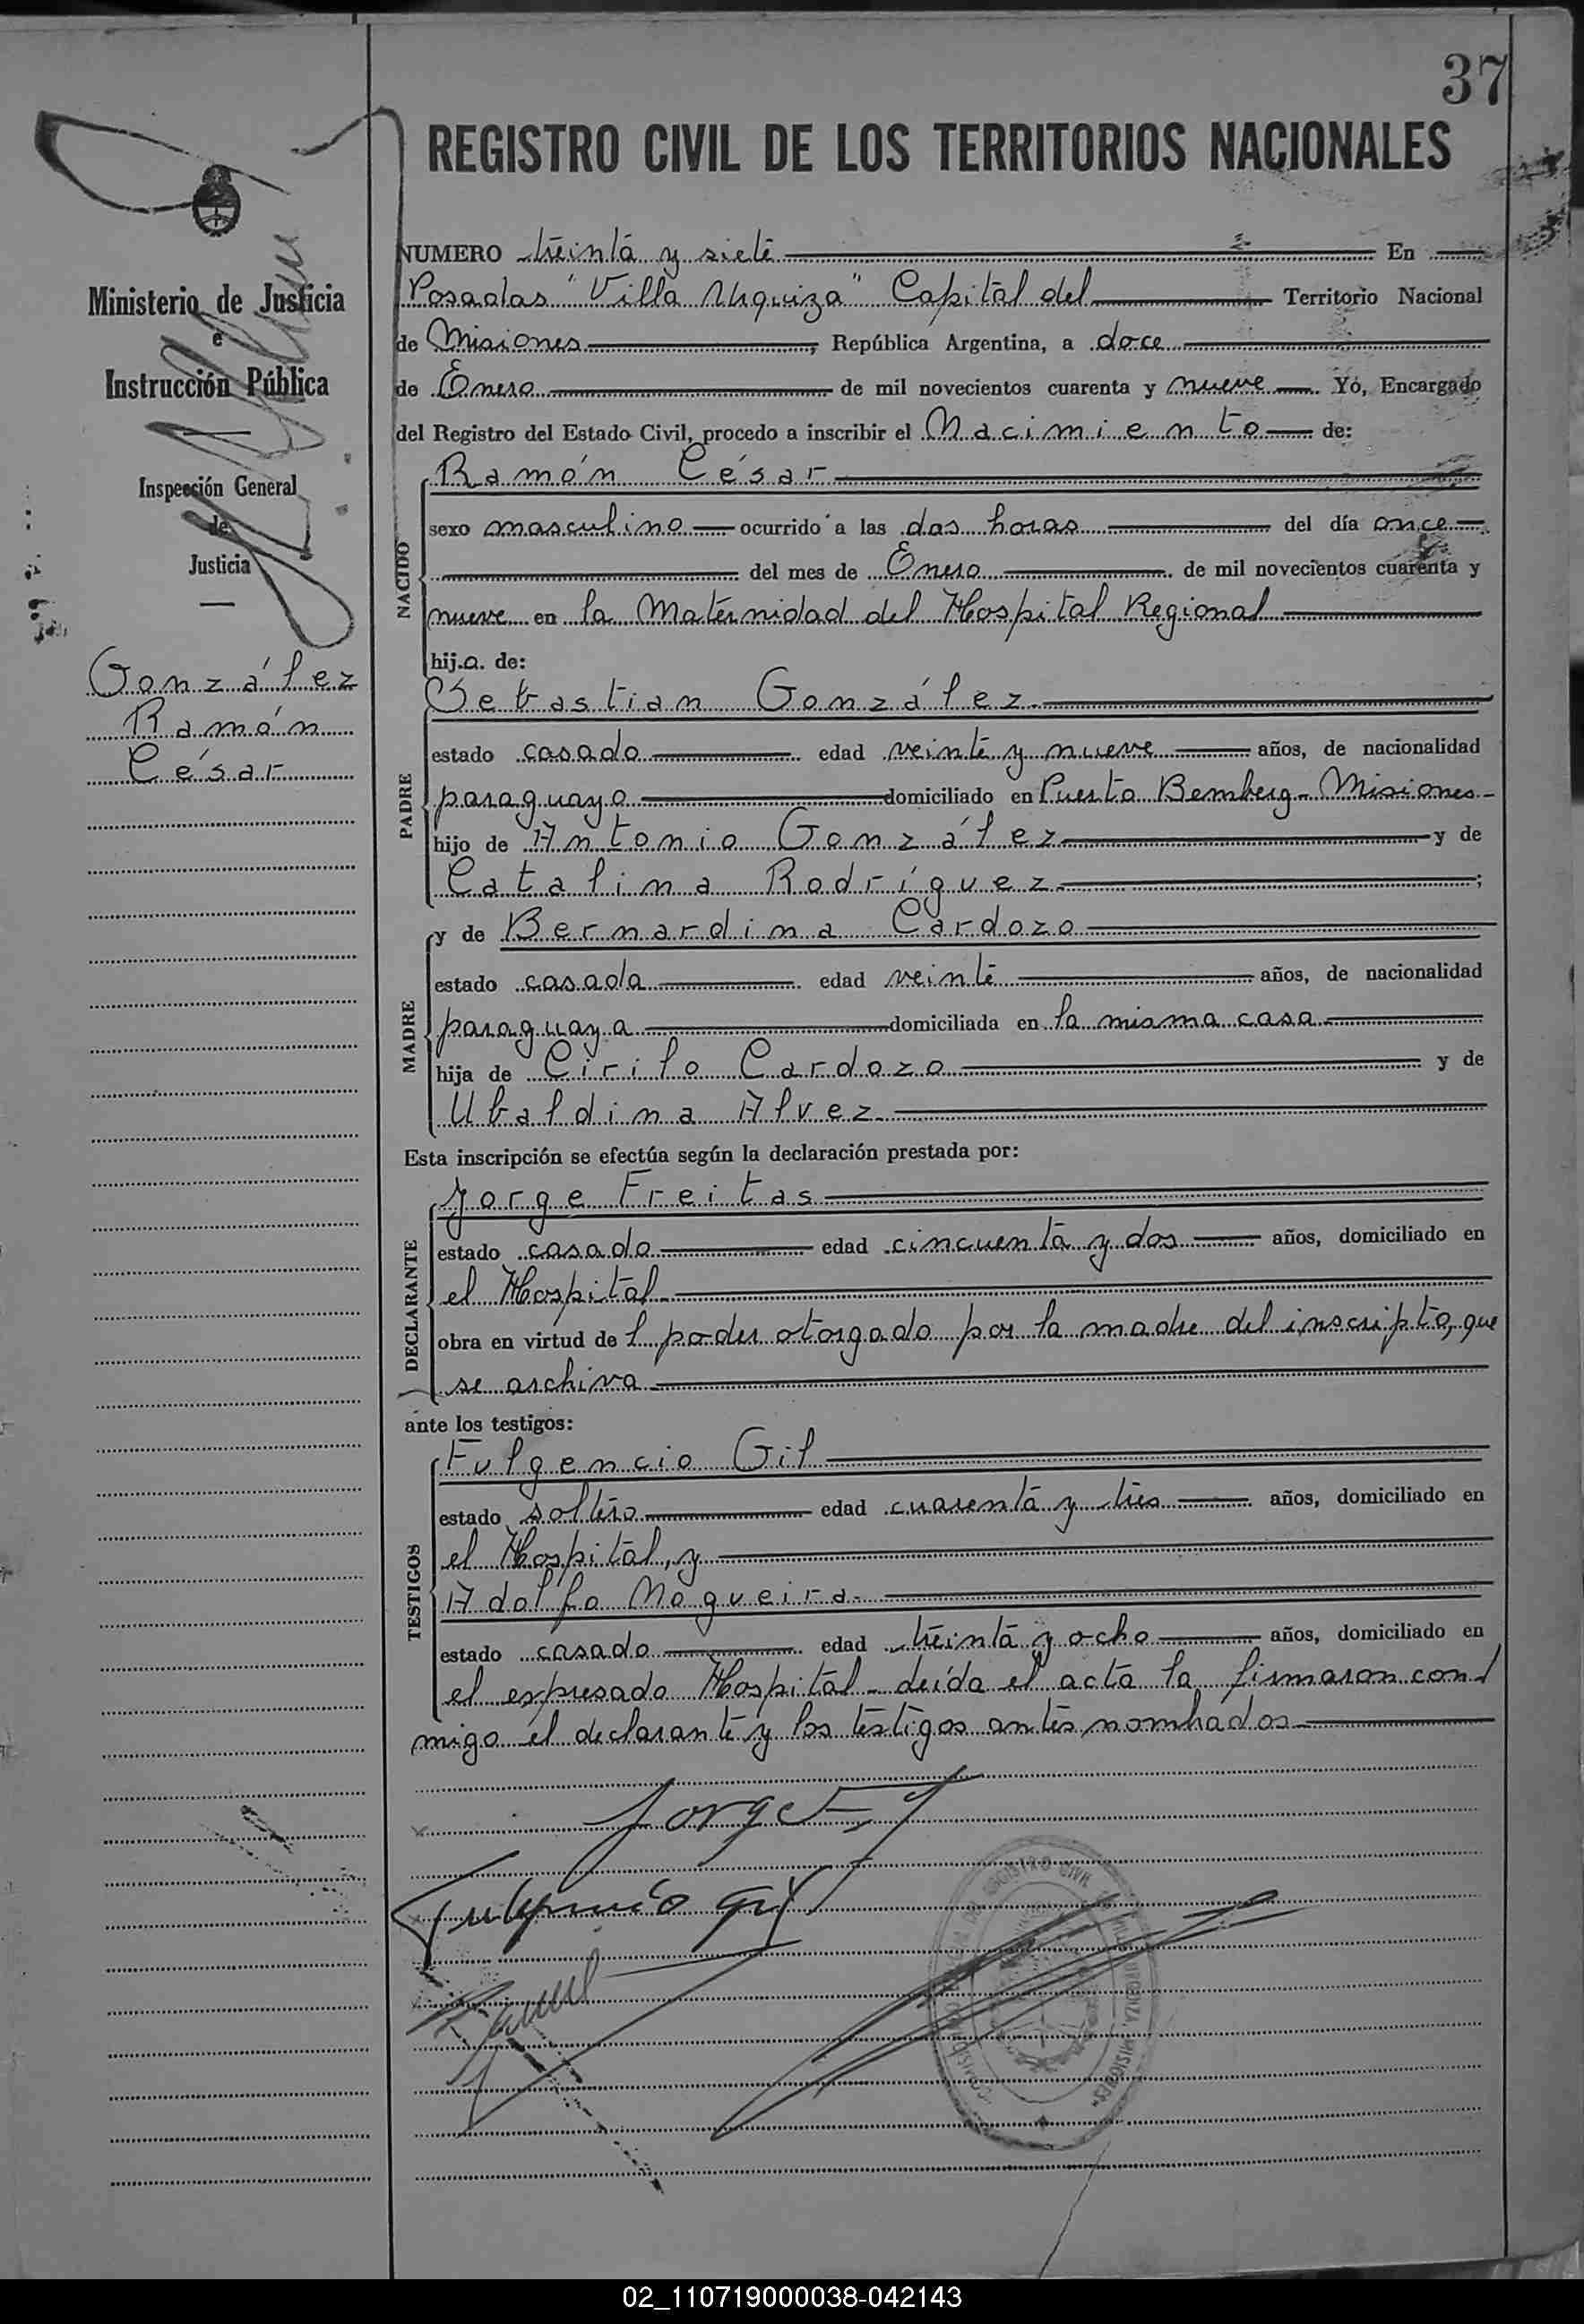 37
REGISTRO CIVIL DE LOS TERRITORIOS NACIONALES
Ministerio de Justicia
e
Instrucción Pública
Inspección General
de
Justicia
González
Ramón
César
NUMERO treinta y siete En
Posadas "Villa Urquiza" Capital del Territorio Nacional
de Misiones, República Argentina, a doce
de Enero de mil novecientos cuarenta y nueve Yo, Encargado
del Registro del Estado Civil, procedo a inscribir el Nacimiento de:
NACIDO
Ramón César
sexo masculino ocurrido a las dos horas del día once
del mes de Enero de mil novecientos cuarenta y
nueve en la Maternidad del Hospital Regional
hijo de:
PADRE
Sebastian González
estado casado edad veinte y nueve años, de nacionalidad
paraguayo domiciliado en Puerto Bemberg - Misiones -
hijo de Antonio González y de
Catalina Rodríguez ;
MADRE
y de Bernardina Cardozo
estado casada edad veinte años, de nacionalidad
paraguaya domiciliada en la misma casa
hija de Cirilo Cardozo y de
Ubaldina Alvez
Esta inscripción se efectúa según la declaración prestada por:
DECLARANTE
Jorge Freitas
estado casado edad cincuenta y dos años, domiciliado en
el Hospital
obra en virtud del poder otorgado por la madre del inscripto, que
se archiva
ante los testigos:
TESTIGOS
Fulgencio Gil
estado soltero edad cuarenta y tres años, domiciliado en
el Hospital, y
Adolfo Nogueira
estado casado edad treinta y ocho años, domiciliado en
el expresado Hospital - Leída el acta la firmaron con
migo el declarante y los testigos antes nombrados
Jorge
Fulgencio Gil
REGISTRO CIVIL
MISIONES
02_110719000038-042143